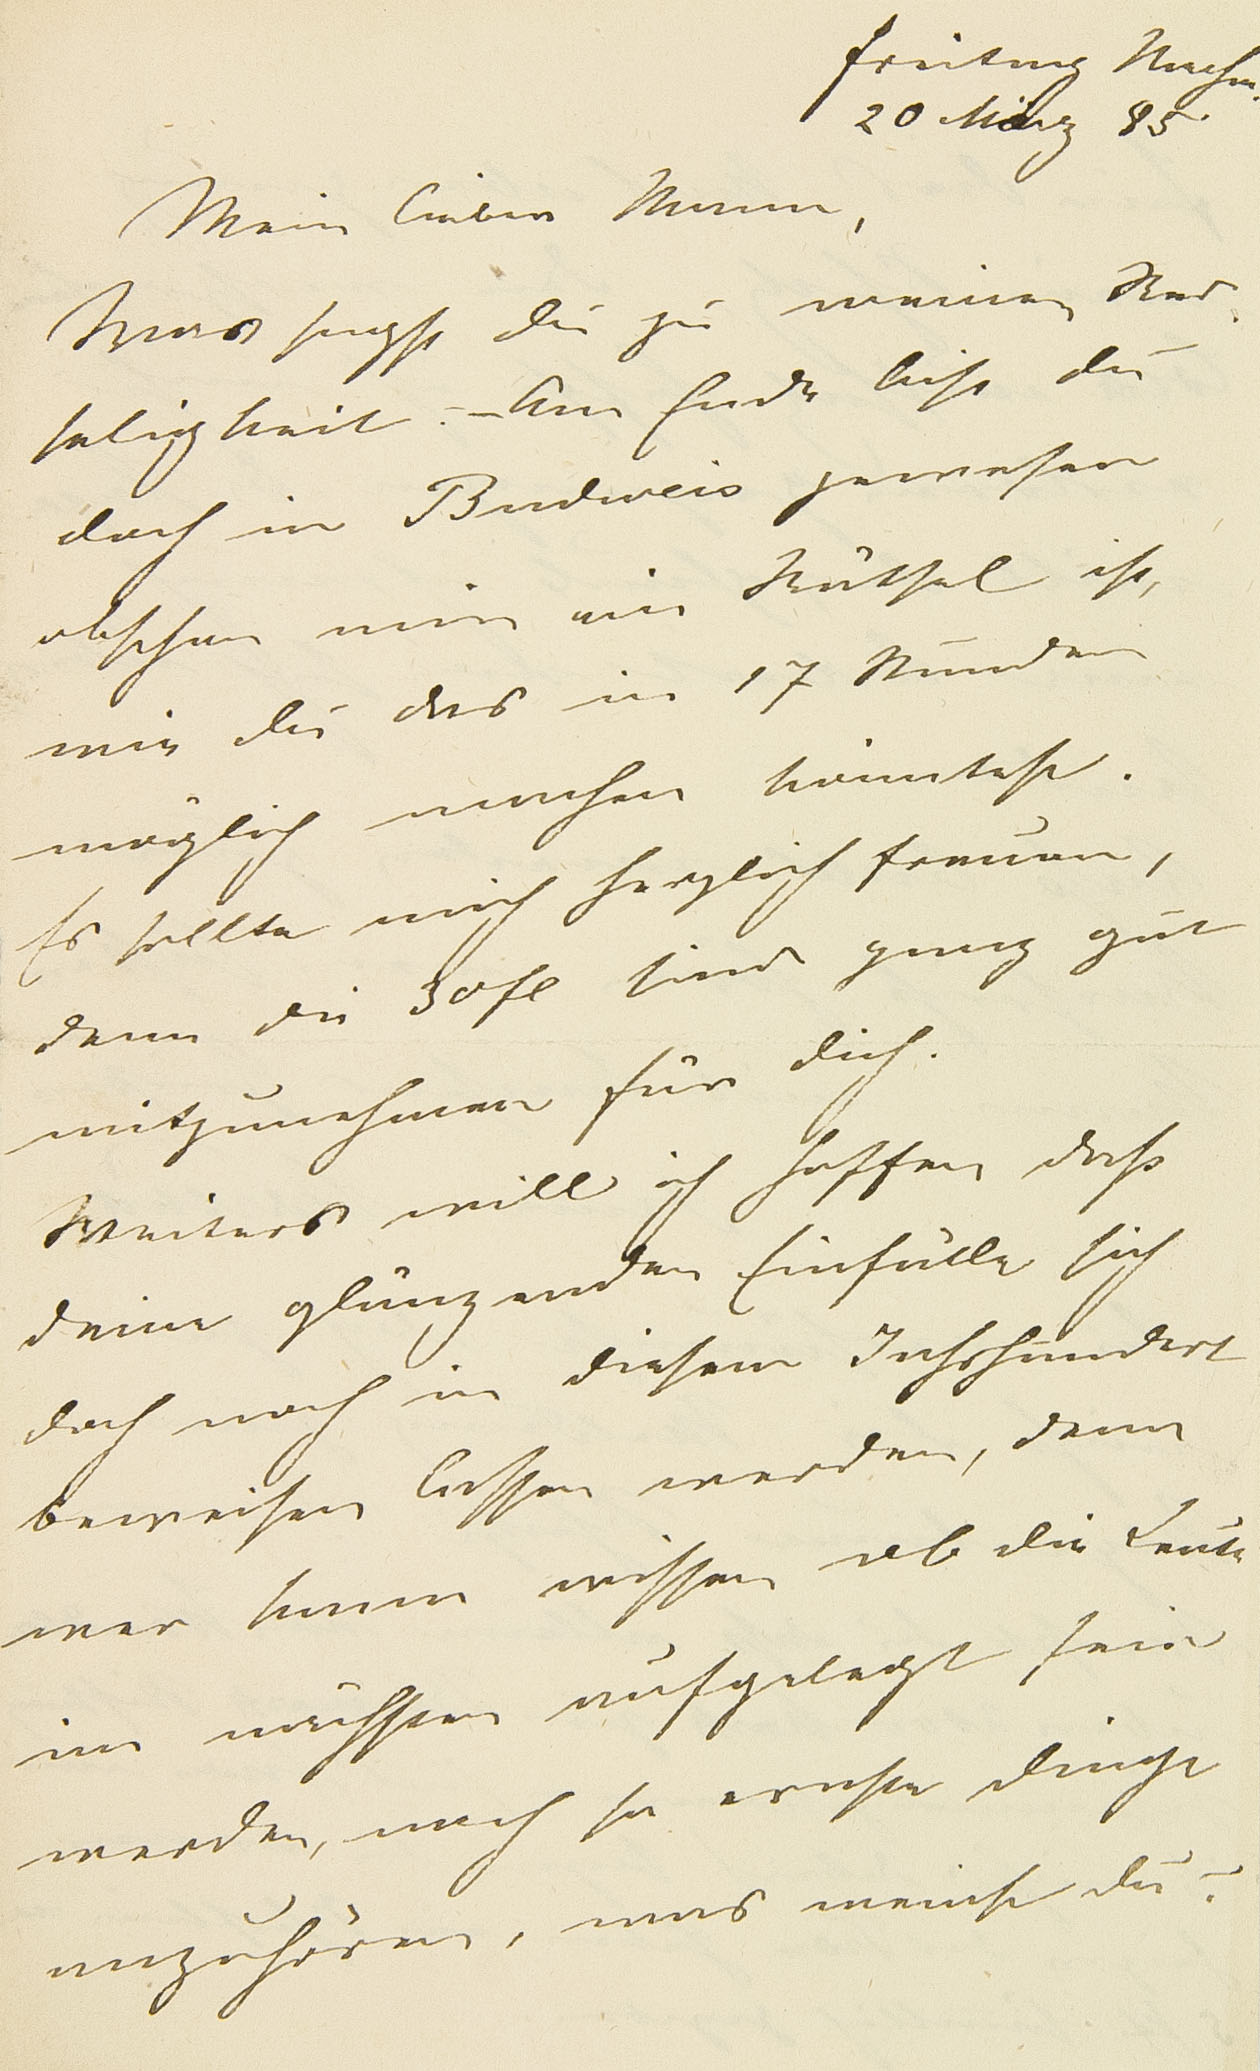 Freitag Nachm.
20 März 85.
Mein lieber Mann,
Was sagst du zu meiner Red-
seligkeit. – Am Ende bist du
doch in Budweis gewesen
obschon mir ein Räthsel ist,
wie du das in 17 Stunden
möglich machen konntest.
Es sollte mich herzlich freuen,
denn die 30 fl sind ganz gut
mitzunehmen für dich.
Weiters will ich hoffen daß
deine glänzenden Einfälle sich
doch noch in diesem Jahrhundert
beweisen lassen werden, denn
wer kann wissen ob die Leute
im nächsten aufgelegt sein
werden, noch so ernste Dinge
anzuhören, was meinst du?